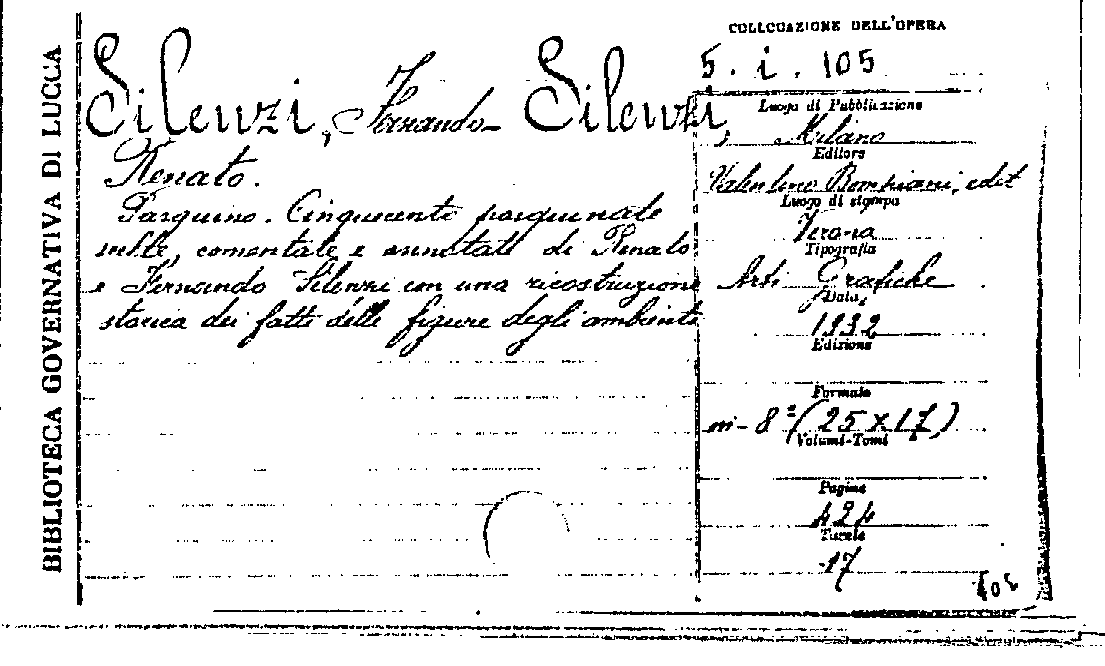 BIBLIOTECA GOVERNATIVA DI LUCCA
Silenzi, Fernando - Silenzi,
Renato.
Pasquino. Cinquecento pasquinate
scelte, comentate e annotate di Renato
e Fernando Silenzi con una ricostruzione
storica dei fatti delle figure degli ambienti
COLLOCAZIONE DELL'OPERA
5. i. 105
Luogo di Pubblicazione
Milano
Editore
Valentino Bompiani, edit
Luogo di stampa
Verona
Tipografia
Arti Grafiche
Data
1932
Edizione
Formato
in-8° (25 x 17)
Volumi-Tomi
Pagine
424
Tavole
17